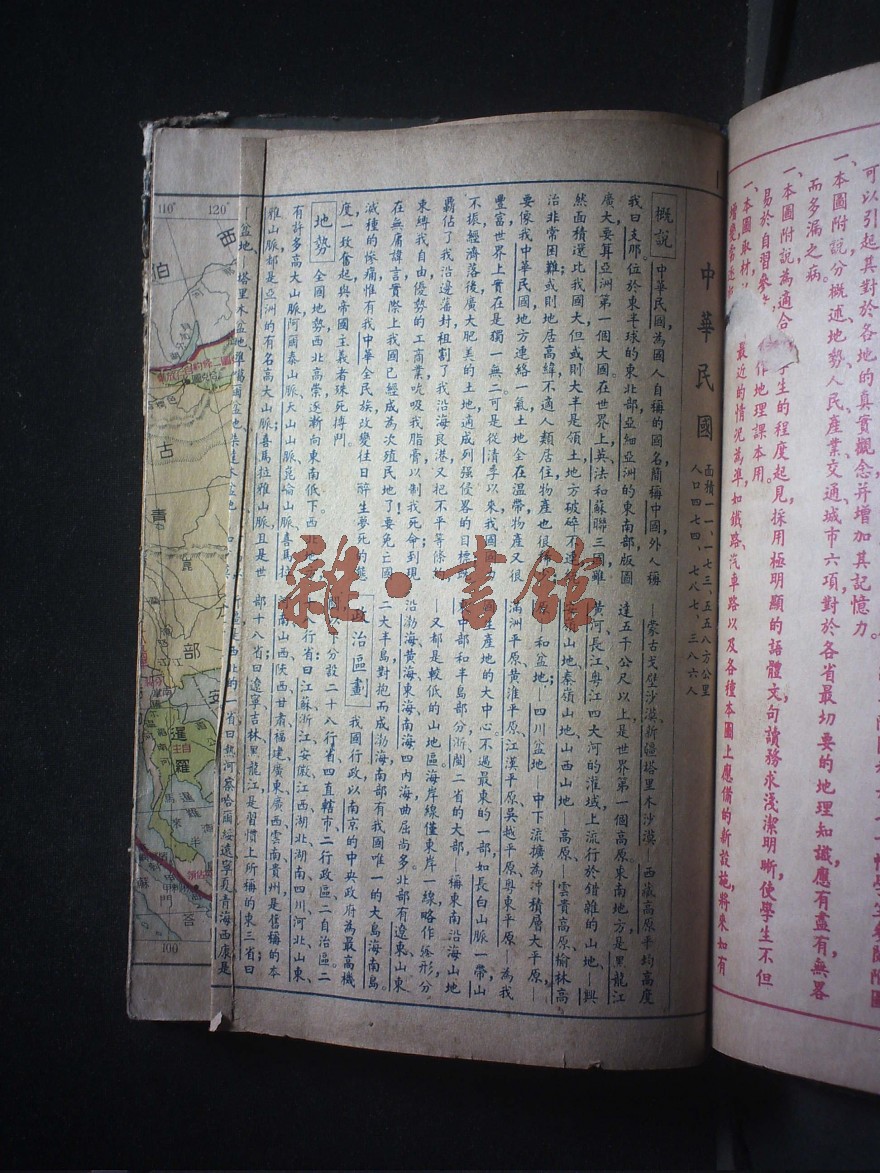 可以引起其對於各地的真實觀念并增加其記憶力。
一、本圖附說,分概述地勢、人民、產業、交通、城市六項,對於各省最切要的地理知識,應有盡有,無畧
而多漏之病。
一、本圖附說為適合學生的程度起見,採用極明顯的語體文,句讀務求淺潔明晰,使學生不但
易於自習參 作地理課本用。
一、本圖取材, 最近的情況為準,如鐵路汽車路以及各種本圖上應備的新設施,將來如有
中華民國 面積一一、一七三、五五八方公里
人口四七四、七八七、三八六人
概說 中華民國,為國人自稱的國名,簡稱中國,外人稱
我曰支那,位於東半球的東北部,亞細亞洲的東南部,版圖
廣大,要算亞洲第一個大國。在世界上,英法和蘇聯三國,雖
然面積還比我國大,但或則大半是領土,地方破碎不連
治非常困難;或則地居高緯,不適人類居住,物產也很
要像我中華民國,地方連絡一氣,土地全在溫帶,物產又很
豐富,世界上實在是獨一無二。可是從清季以來,我國
不振,經濟落後,廣大肥美的土地,適成列強侵略的目標
霸佔了我沿邊藩封,租割了我沿海良港,又把不平等條
束縛我自由,優勢的工商業,吮吸我脂膏,以制我死命,到現
在無庸諱言,實際上我國已經成為次殖民地了!要免亡國
滅種的慘痛,惟有我中華全民族,改變往日醉生夢死的態
度,一致奮起與帝國主義者殊死搏鬥。
地勢 全國地勢,西北高崇,逐漸向東南低下。西北地
有許多高大山脈,阿爾泰山脈、天山山脈、崑崙山脈、喜馬拉
雅山脈都是亞洲的有名高大山脈;喜馬拉雅山脈且是世
—蒙古戈壁沙漠、新疆塔里木沙漠—西藏高原平均高度
達五千公尺以上,是世界第一個高原。東南地方,是黑龍江
黃河、長江、粵江四大河的灌域,上流行於錯雜的山地,—興
安嶺山地、秦嶺山地、山西山地—高原—雲貴高原、榆林高
原和盆地;—四川盆地—中下流擴為沖積層大平原—
滿洲平原、黃淮平原、江漢平原、吳越平原、粵東平原—為我
國生產地的大中心。不過最東的一部,如長白山脈一帶,山
東中部和半島部分,浙閩二省的大部,稱東南沿海山地
—又都是較低的山地區。海岸線僅東岸一線,略作弧形,分
沿渤海、黃海、東海、南海四內海,曲屈尚多。北部有遼東、山東
二大半島對抱而成渤海,南部有我國唯一的大島海南島。
政治區劃 我國行政,以南京的中央政府為最高機
分設二十八行省、四直轄市、二行政區、二自治區。二
十八行省曰:江蘇、浙江、安徽、江西、湖北、湖南、四川、河北、山東、
河南、山西、陝西、甘肅、福建、廣東、廣西、雲南、貴州,是舊稱的本
部十八省;曰遼寧、吉林、黑龍江,是習慣上所稱的東三省;曰
熱河、察哈爾、綏遠、寧夏、青海、西康,是
雜·書館
110°
120°
西
伯
古
青
部
安
暹
羅
100